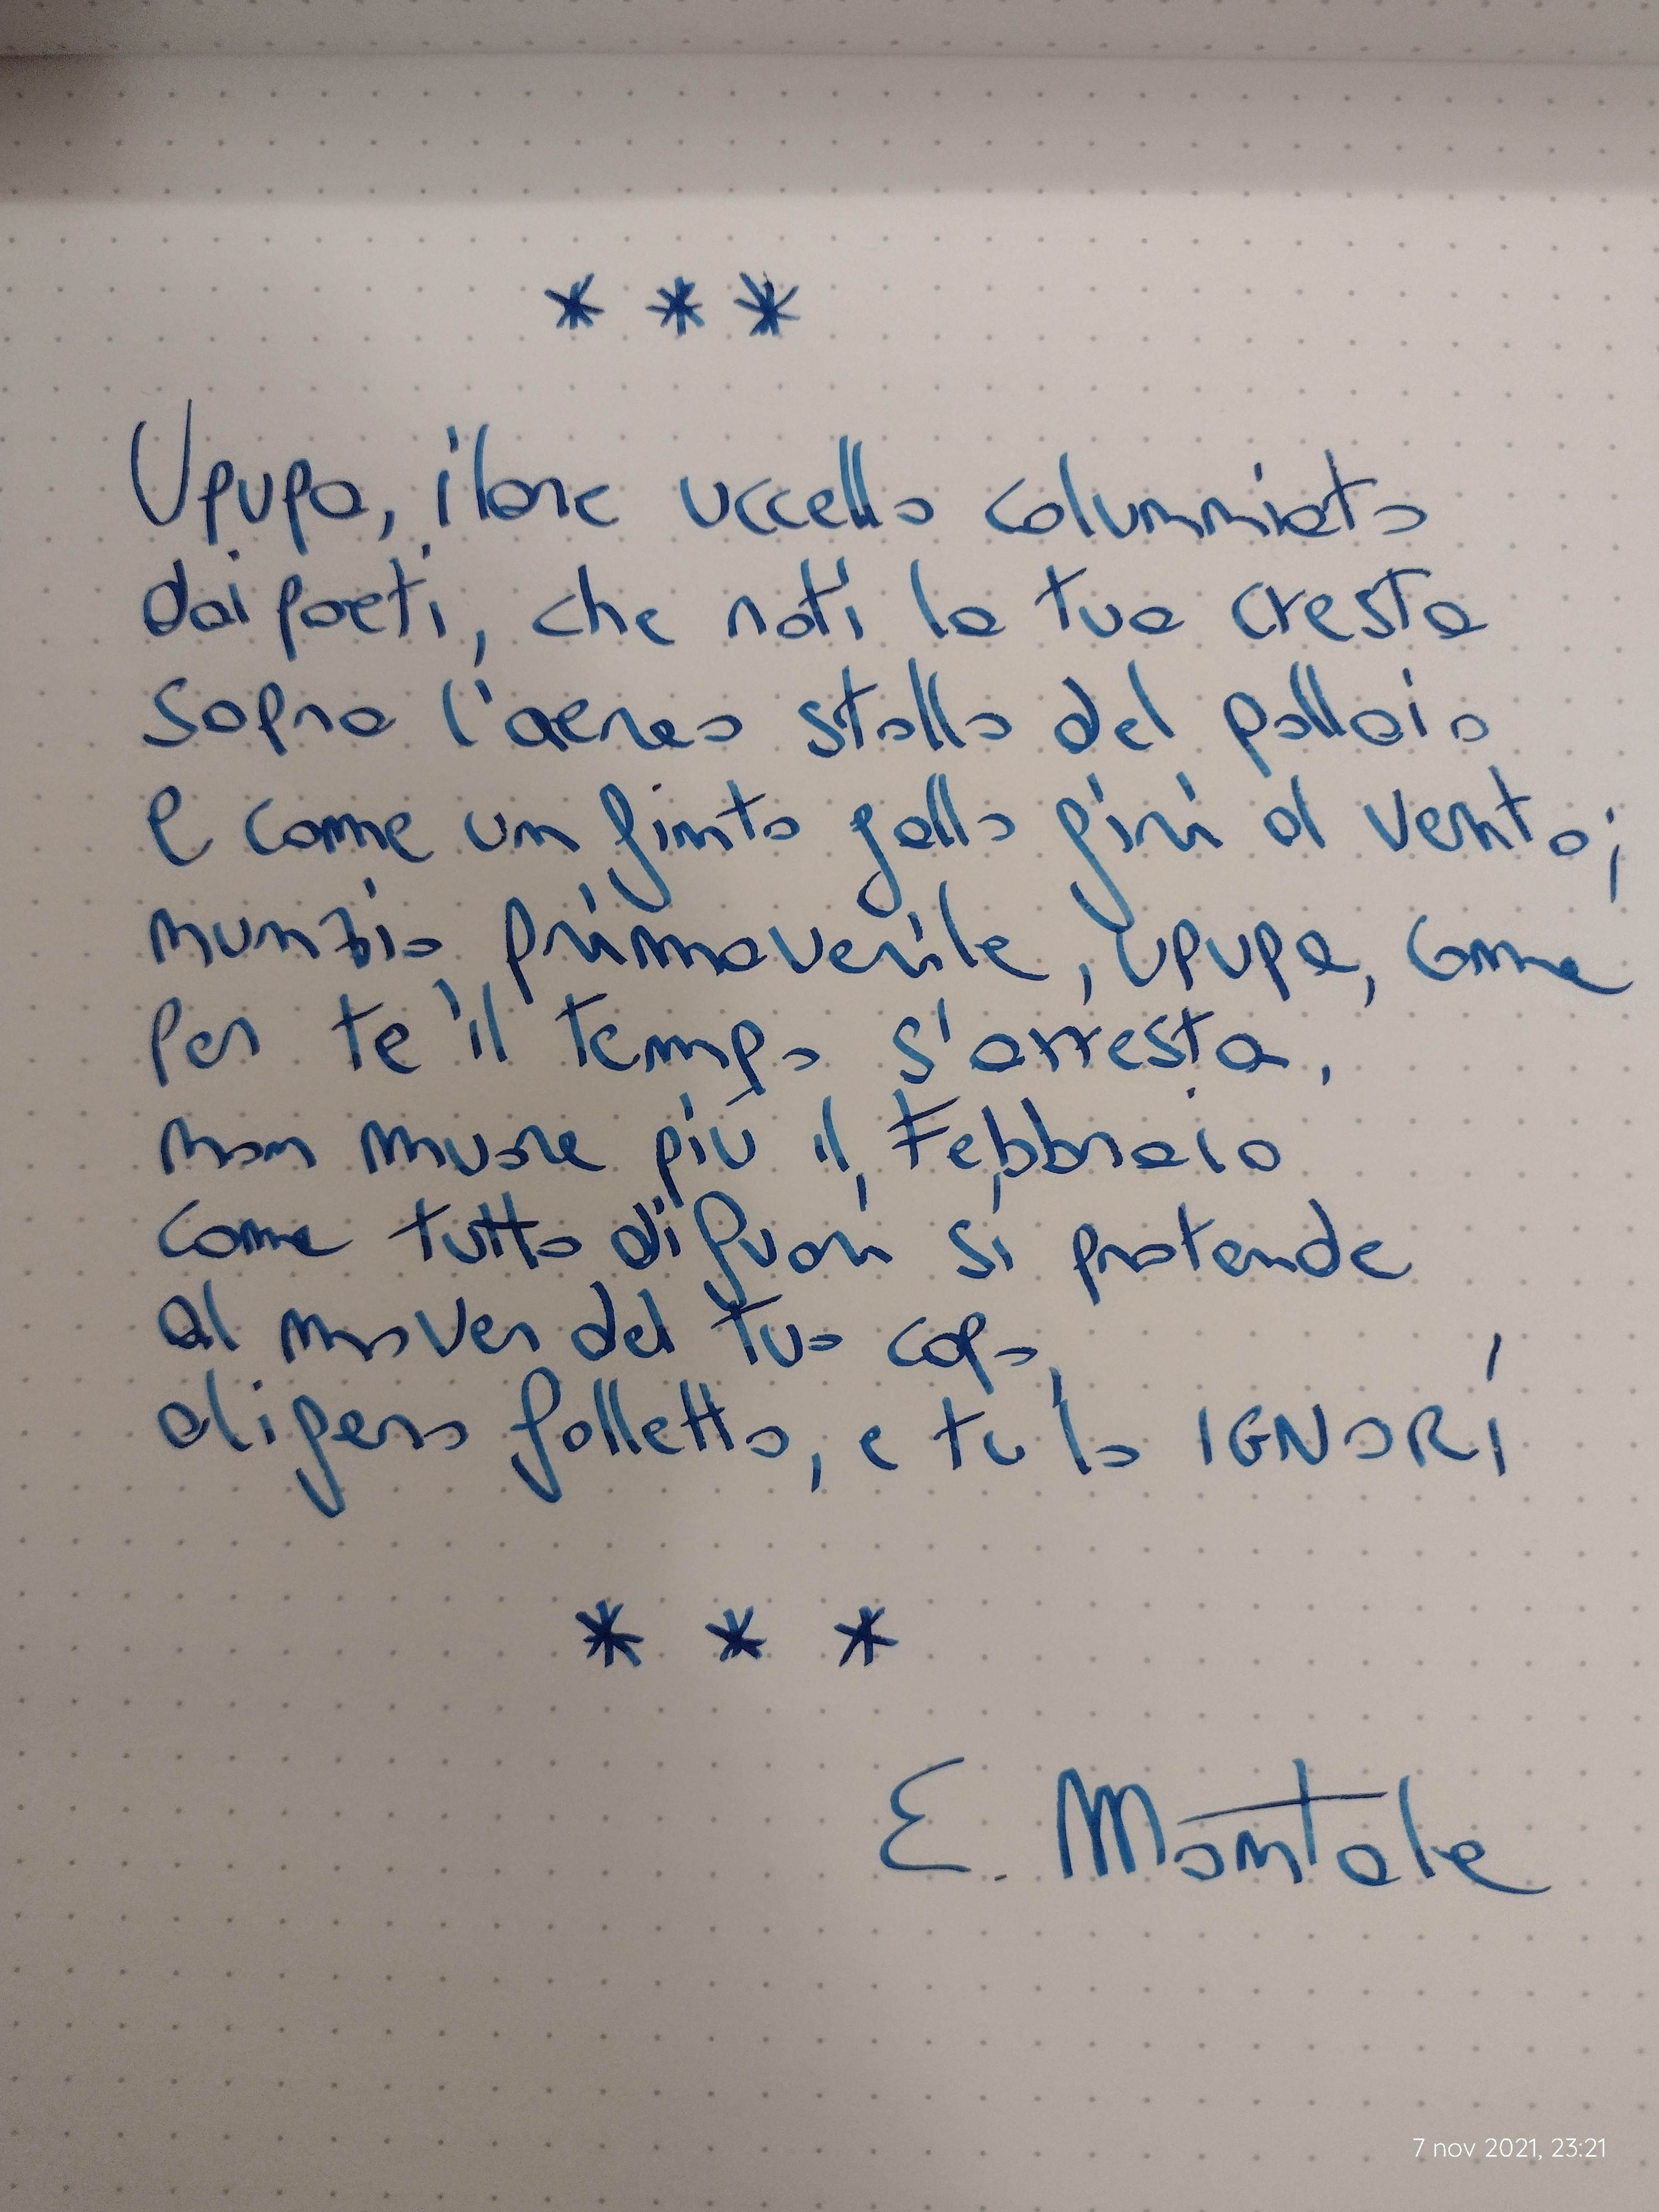 * * *
Upupa, ilare uccello calunniato
dai poeti, che roti la tua cresta
sopra l'aereo stollo del pollaio
e come un finto gallo giri al vento;
nunzio primaverile, upupa, come
per te il tempo s'arresta,
non muore più il Febbraio
come tutto di fuori si protende
al mover del tuo capo,
aligero folletto, e tu lo IGNORI
* * *
E. Montale
7 nov 2021, 23:21